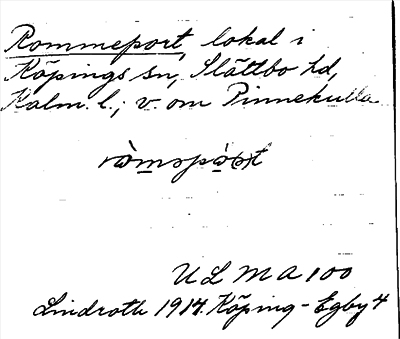 Rommeport, lokal i
Köpings sn, Slättbo hd,
Kalm. l.; v. om Pinnekulla
ULMA 100
Lindroth 1914. Köping-Egby 4